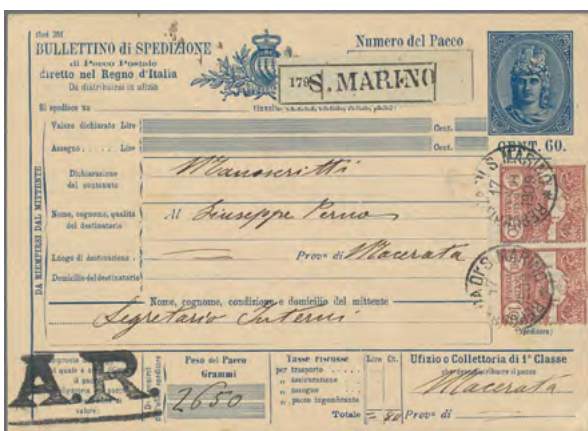 BULLETTINO di SPEDIZIONE
di Pacco Postale
diretto nel Regno d'Italia
Da distribuirsi in ufizio
Numero del Pacco
S. MARINO
CENT. 60.
Si spedisce un
Valore dichiarato Lire
Cent.
Assegno Lire
Cent.
DA RIEMPIRSI DAL MITTENTE
Dichiarazione
del contenuto
Manoscritti
Nome, cognome, qualità
del destinatario
Al Giuseppe Perno
Luogo di destinazione
Prov.ª di Macerata
Domicilio del destinatario
Nome, cognome, condizione e domicilio del mittente
Segretario Interni
(Speditore)
A.R.
Peso del Pacco
Grammi
2650
Tasse riscosse
Lire Ct.
per trasporto
„ assicurazione
„ assegno
„ pacco ingombrante
Totale
Ufizio o Collettoria di 1ª Classe
che deve distribuire il pacco
Macerata
Prov.ª di